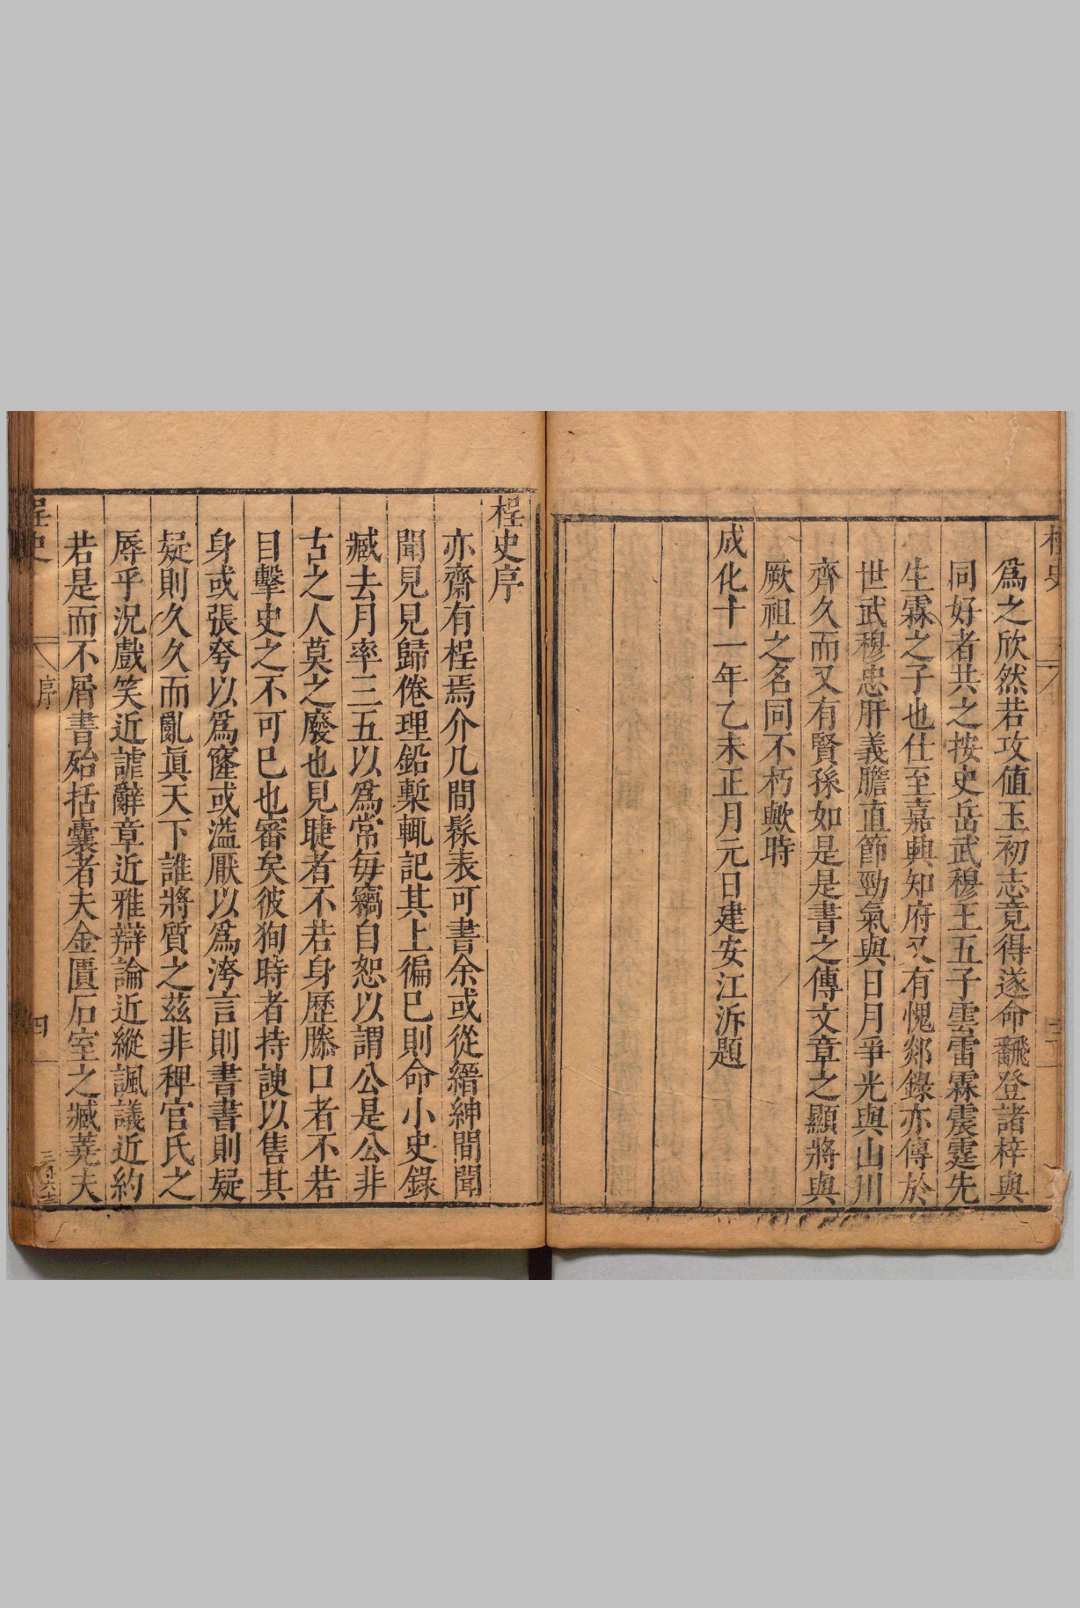 爲之欣然若攻値玉初志竟得遂命翻登諸梓與
同好者共之按史岳武穆王五子雲雷霖震霆先
生霖之子也仕至嘉興知府又有愧郯錄亦傳於
世武穆忠肝義膽直節勁氣與日月爭光與山川
齊久而又有賢孫如是是書之傳文章之顯將與
厥祖之名同不朽歟時
成化十一年乙未正月元日建安江泝題
桯史序
亦齋有桯焉介几間髹表可書余或從縉紳間聞
聞見見歸倦理鉛槧輒記其上徧已則命小史錄
臧去月率三五以爲常每竊自恕以謂公是公非
古之人莫之廢也見睫者不若身歷滕口者不若
目擊史之不可已也審矣彼狥時者持諛以售其
身或張夸以爲窿或溢厭以爲洿言則書書則疑
疑則久久而亂眞天下誰將質之茲非稗官氏之
辱乎況戲笑近謔辭章近雅辯論近縱諷議近約
若是而不屑書殆括囊者夫金匱石室之臧蕘夫
桯史
序
四